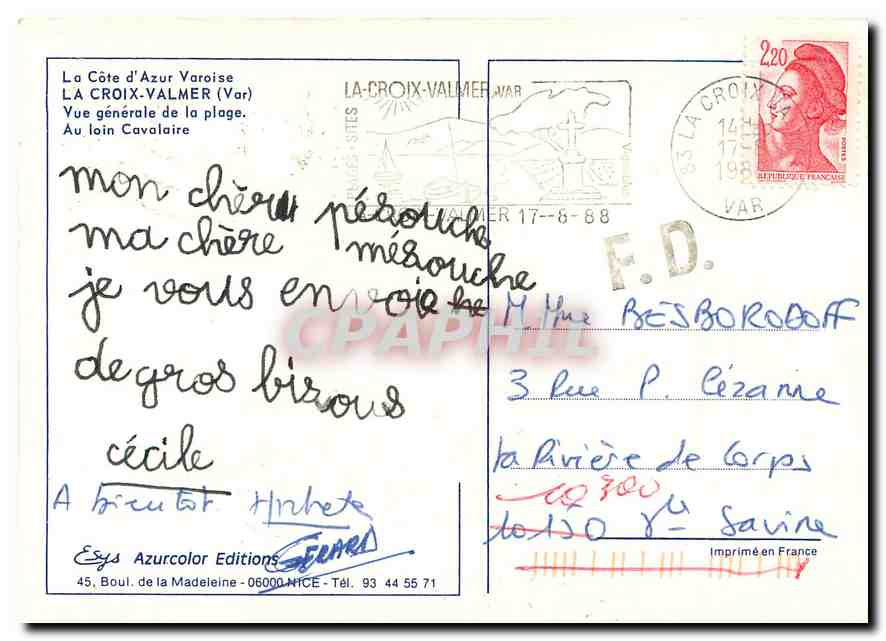 La Côte d'Azur Varoise
LA CROIX-VALMER (Var)
Vue générale de la plage.
Au loin Cavalaire
LA-CROIX-VALMER VAR
SITES
VALMER 17--8-88
83 LA CROIX
14H
17
198
VAR
2,20
POSTES
REPUBLIQUE FRANÇAISE
F.D.
mon chèr pérouche
ma chère mérouche
je vous envoie
de gros bisous
cécile
A bientot
GERARD
CPAPHIL
M. Mme BESBORODOFF
3 Rue P. Cézanne
La Rivière de Corps
10300
10150 Ste Savine
Esys Azurcolor Editions
45, Boul. de la Madeleine - 06000 NICE - Tél. 93 44 55 71
Imprimé en France